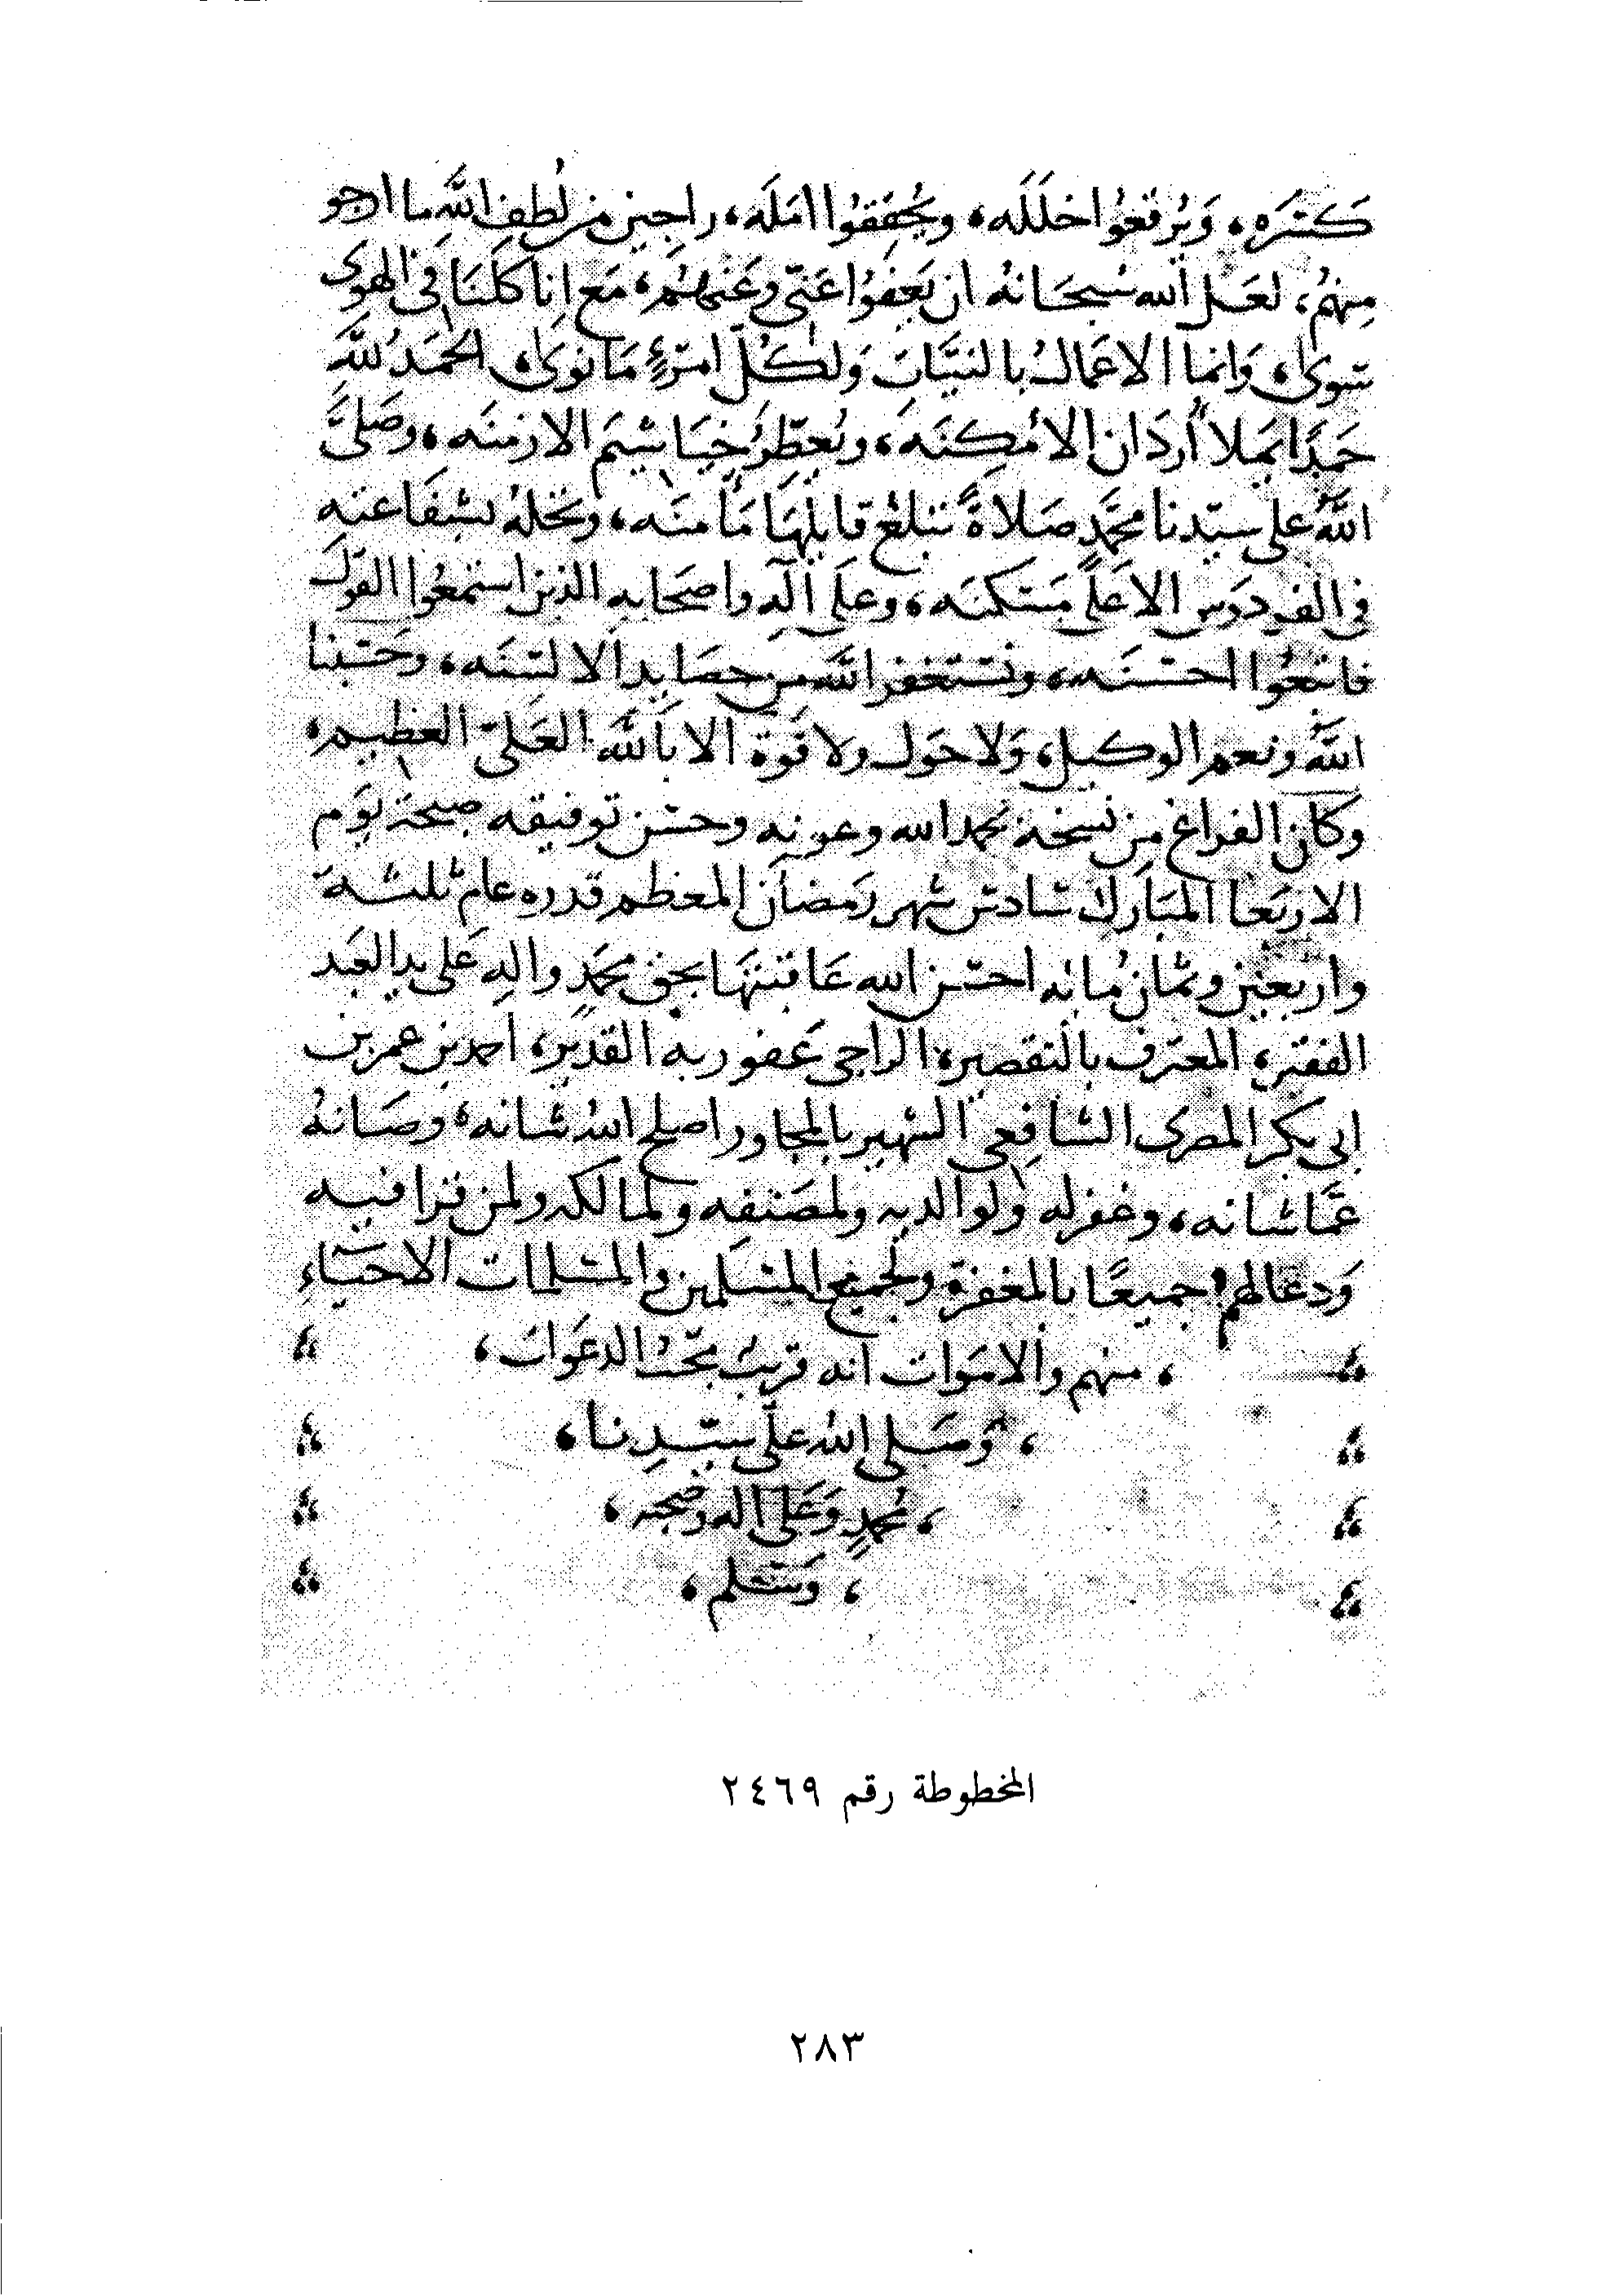 كَسْرَه، وَيُرقعُوا خلَلَه، ويُحَققوُا امَلَه، راجِين من لُطفِ اللَّهِ ما ارجو
مِنهُم، لعَل الله سُبحَانهُ ان يَعفوُا عَنّى وعَنهُم، مَع انا كلنَا في الهَوى
سَوىً، وَانما الاعَمالُ بالنيَّات وَلكُلّ امْرِئٍ مَا نوَى، الحَمدُ للَّه
حَمدًا يَملا أردَان الأمكِنَه، ويُعطّرُ خيَاشيمَ الازمنَه، وصَلىَّ
اللَّهُ على سيّدنا محمَّدٍ صَلاةً تبلغ قايلهَا مَأمنَه، وتحلهُ بشفَاعتِه
في الفردَوس الاعَلى مَسكنَه، وعَلى آله واصحَابه الذين استمعُوا القول
فاتبعُوا احسَنَه، ونستَغفر اللَّه من حصَايد الالسنَه، وحَسْبنا
اللَّهُ ونعم الوكيل، وَلا حَول ولا قوة الا باللَّه العَلىّ العَظيم،
وكان الفراغ من نسخة بحمد الله وعونه وحسْن توفيقه صبحة يَوم
الاربَعا المبَارك سَادسْ شهر رَمضان المعَظم قدره عام ثلثة
واربَعين وثمان مُائه احسَن الله عَاقبتهَا بحق محمَدٍ والِه عَلى يد العَبد
الفقير، المعترف بالتقصير، الراجى عَفو ربه القدير، احمد بن عمر بن
ابى بكر المصرى الشافِعى الشهير بالمجاور اصلح اللهُ شانه، وصَانهُ
عمَّا شانه، وغفر له ولوالديه ولمصَنفِه ولمالكه ولمن قرا فيه
وَدعَا لهم جميعًا بالمغفرة ولجميع المسْلمين والمسْلمات الاحيَاءِ
، منهم والامَوات انه قريبُ مجيبُ الدعَوات،
، وَصَلى اللهُ على سيّدِنا،
، مُحمدٍ وَعَلى اله وصَحبه،
، وَسَلم،
المخطوطة رقم ٢٤٦٩
٢٨٣